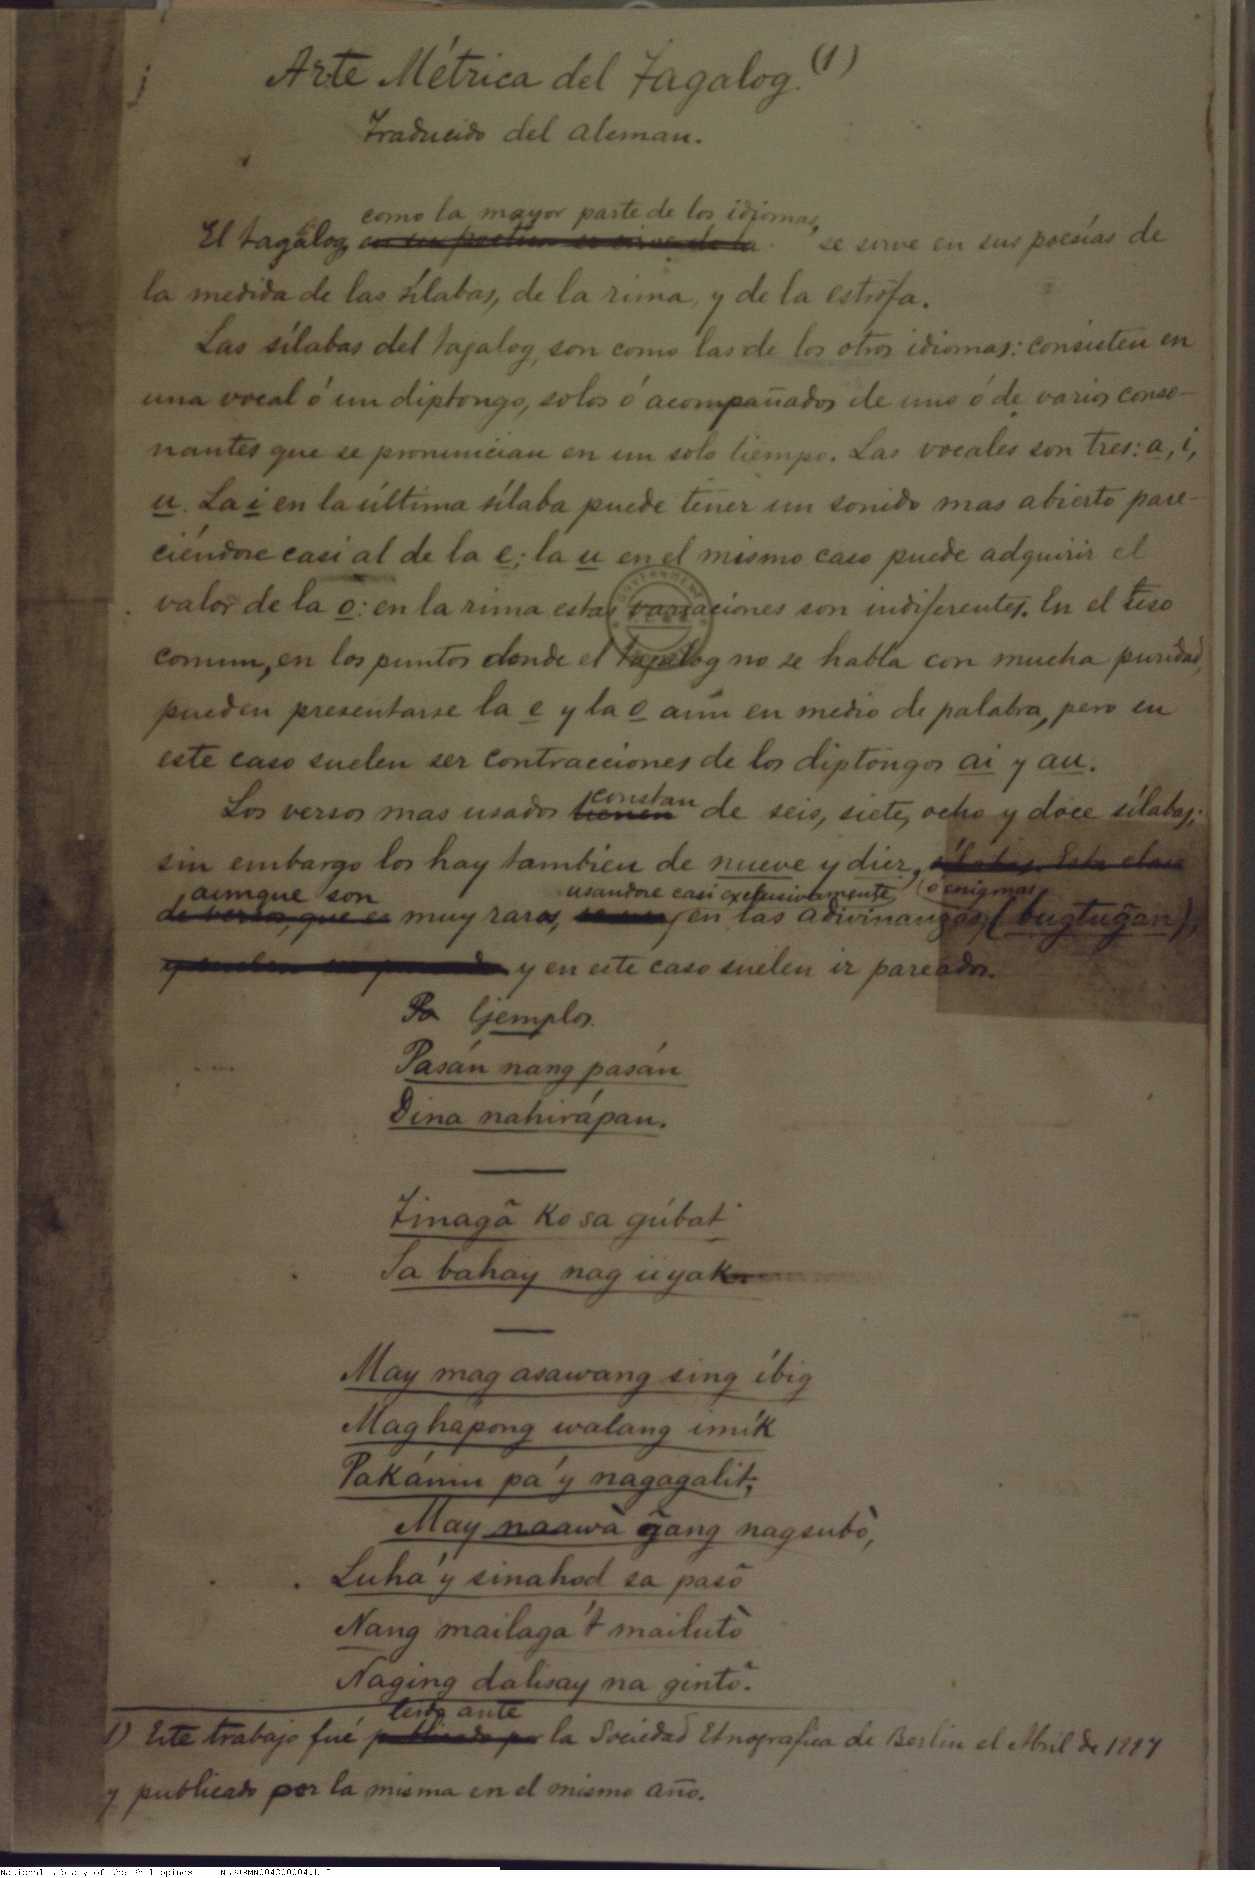 Arte Métrica del Tagalog. (1)
Traducido del aleman.
como la mayor parte de los idiomas,
El tagálog se sirve en sus poesías de
la medida de las sílabas, de la rima, y de la estrofa.
Las sílabas del tagalog, son como las de los otros idiomas: consisten en
una vocal ó un diptongo, solos ó acompañados de uno ó de varios conso-
nantes que se pronuncian en un solo tiempo. Las vocales son tres: a, i,
u. La i en la última sílaba puede tener un sonido mas abierto pare-
ciéndose casi al de la e; la u en el mismo caso puede adquirir el
valor de la o: en la rima estas variaciones son indiferentes. En el uso
comun, en los puntos donde el tagalog no se habla con mucha puridad,
pueden presentarse la e y la o aún en medio de palabra, pero en
este caso suelen ser contracciones de los diptongos ai y au.
constan
Los versos mas usados tienen de seis, siete, ocho y doce sílabas;
sin embargo los hay tambien de nueve y diez, sílabas. Esta clase
aunque son usandose casi exclusivamente (ó enigmas)
de versos, que es muy raros, en las adivinanzas, (bugtug̃an),
y en este caso suelen ir pareados.
Pa Ejemplos.
Pasán nang pasán
Dina nahirápan.
Tinagã ko sa gúbat
Sa bahay nag iiyak
May mag asawang sing íbig
Maghapong walang imík
Pakánin pa'y nagagalit;
May naawà g̃ang nagsubò,
Luhá'y sinahod sa pasô
Nang mailaga't mailutò
Naging dalisay na gintô.
leido ante
1) Este trabajo fué publicado por la Sociedad Etnografica de Berlin el Abril de 1887
y publicado por la misma en el mismo año.
National Library of the Philippines